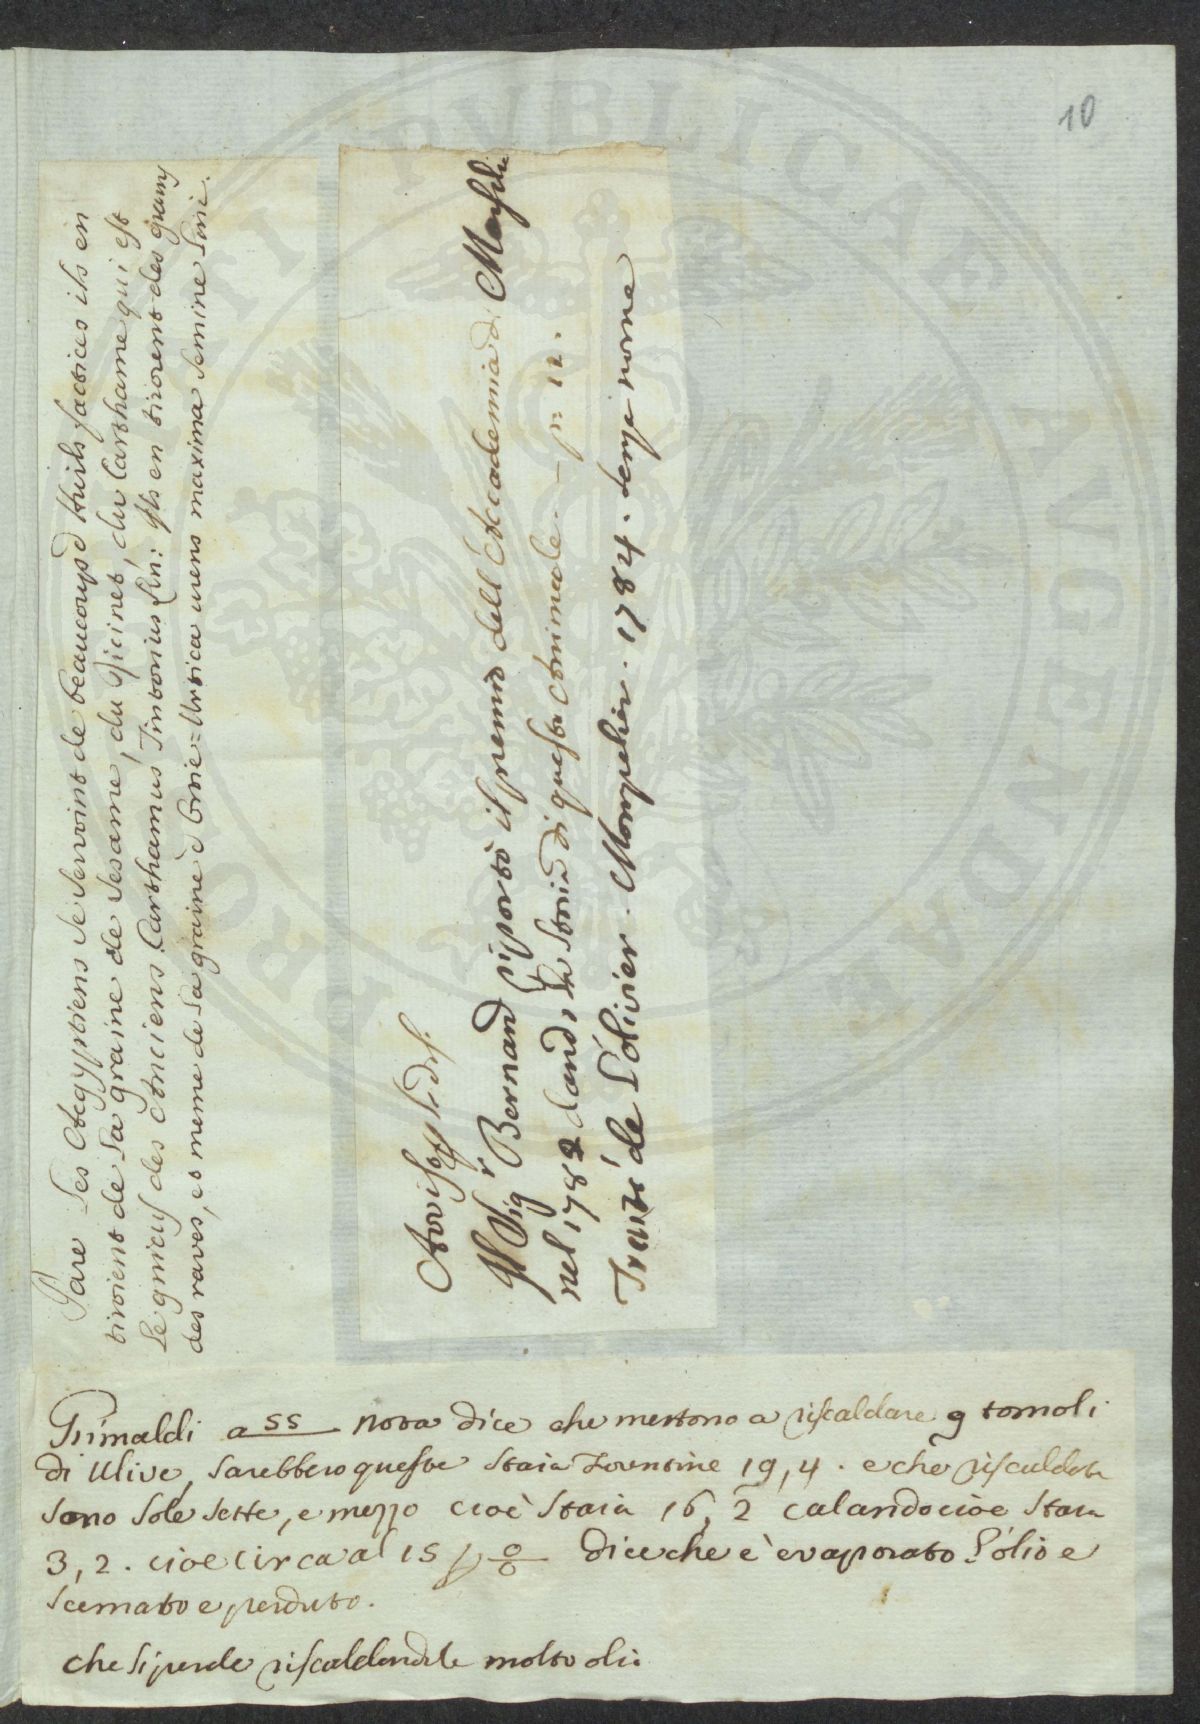 10
Pare Les Aegyptiens se servoint de beaucoup d'Huils factices ils en
tiroient de la graine de Sesame, du Ricinet, du Carthame qui est
le gnicus des Anciens. Carthamus Tintorius Lin: Ils en tirorent des
des raves, et meme de la graine d'Ortie = Urtica urens maxima semine Lini.
Il Sigr Bernard riportò il premio dell'Accademia di Marsilia
nel 1782 dando la Storia di questo Animale. — p: 12.
Traité de L'olivier. Monpelier. 1784. senza nome
Grimaldi a 55 nota dice che mettono a riscaldare 9 tomoli
di Ulive, sarebbero queste Staia Fiorentine 19,4. e che riscaldate
sono sole sette, e mezzo cioè Staia 16,2 calando cioe Staia
3,2. cioe circa al 15 p o/o dice che è evaporato l'olio e
scemato e perduto.
che si perde riscaldandole molto olio